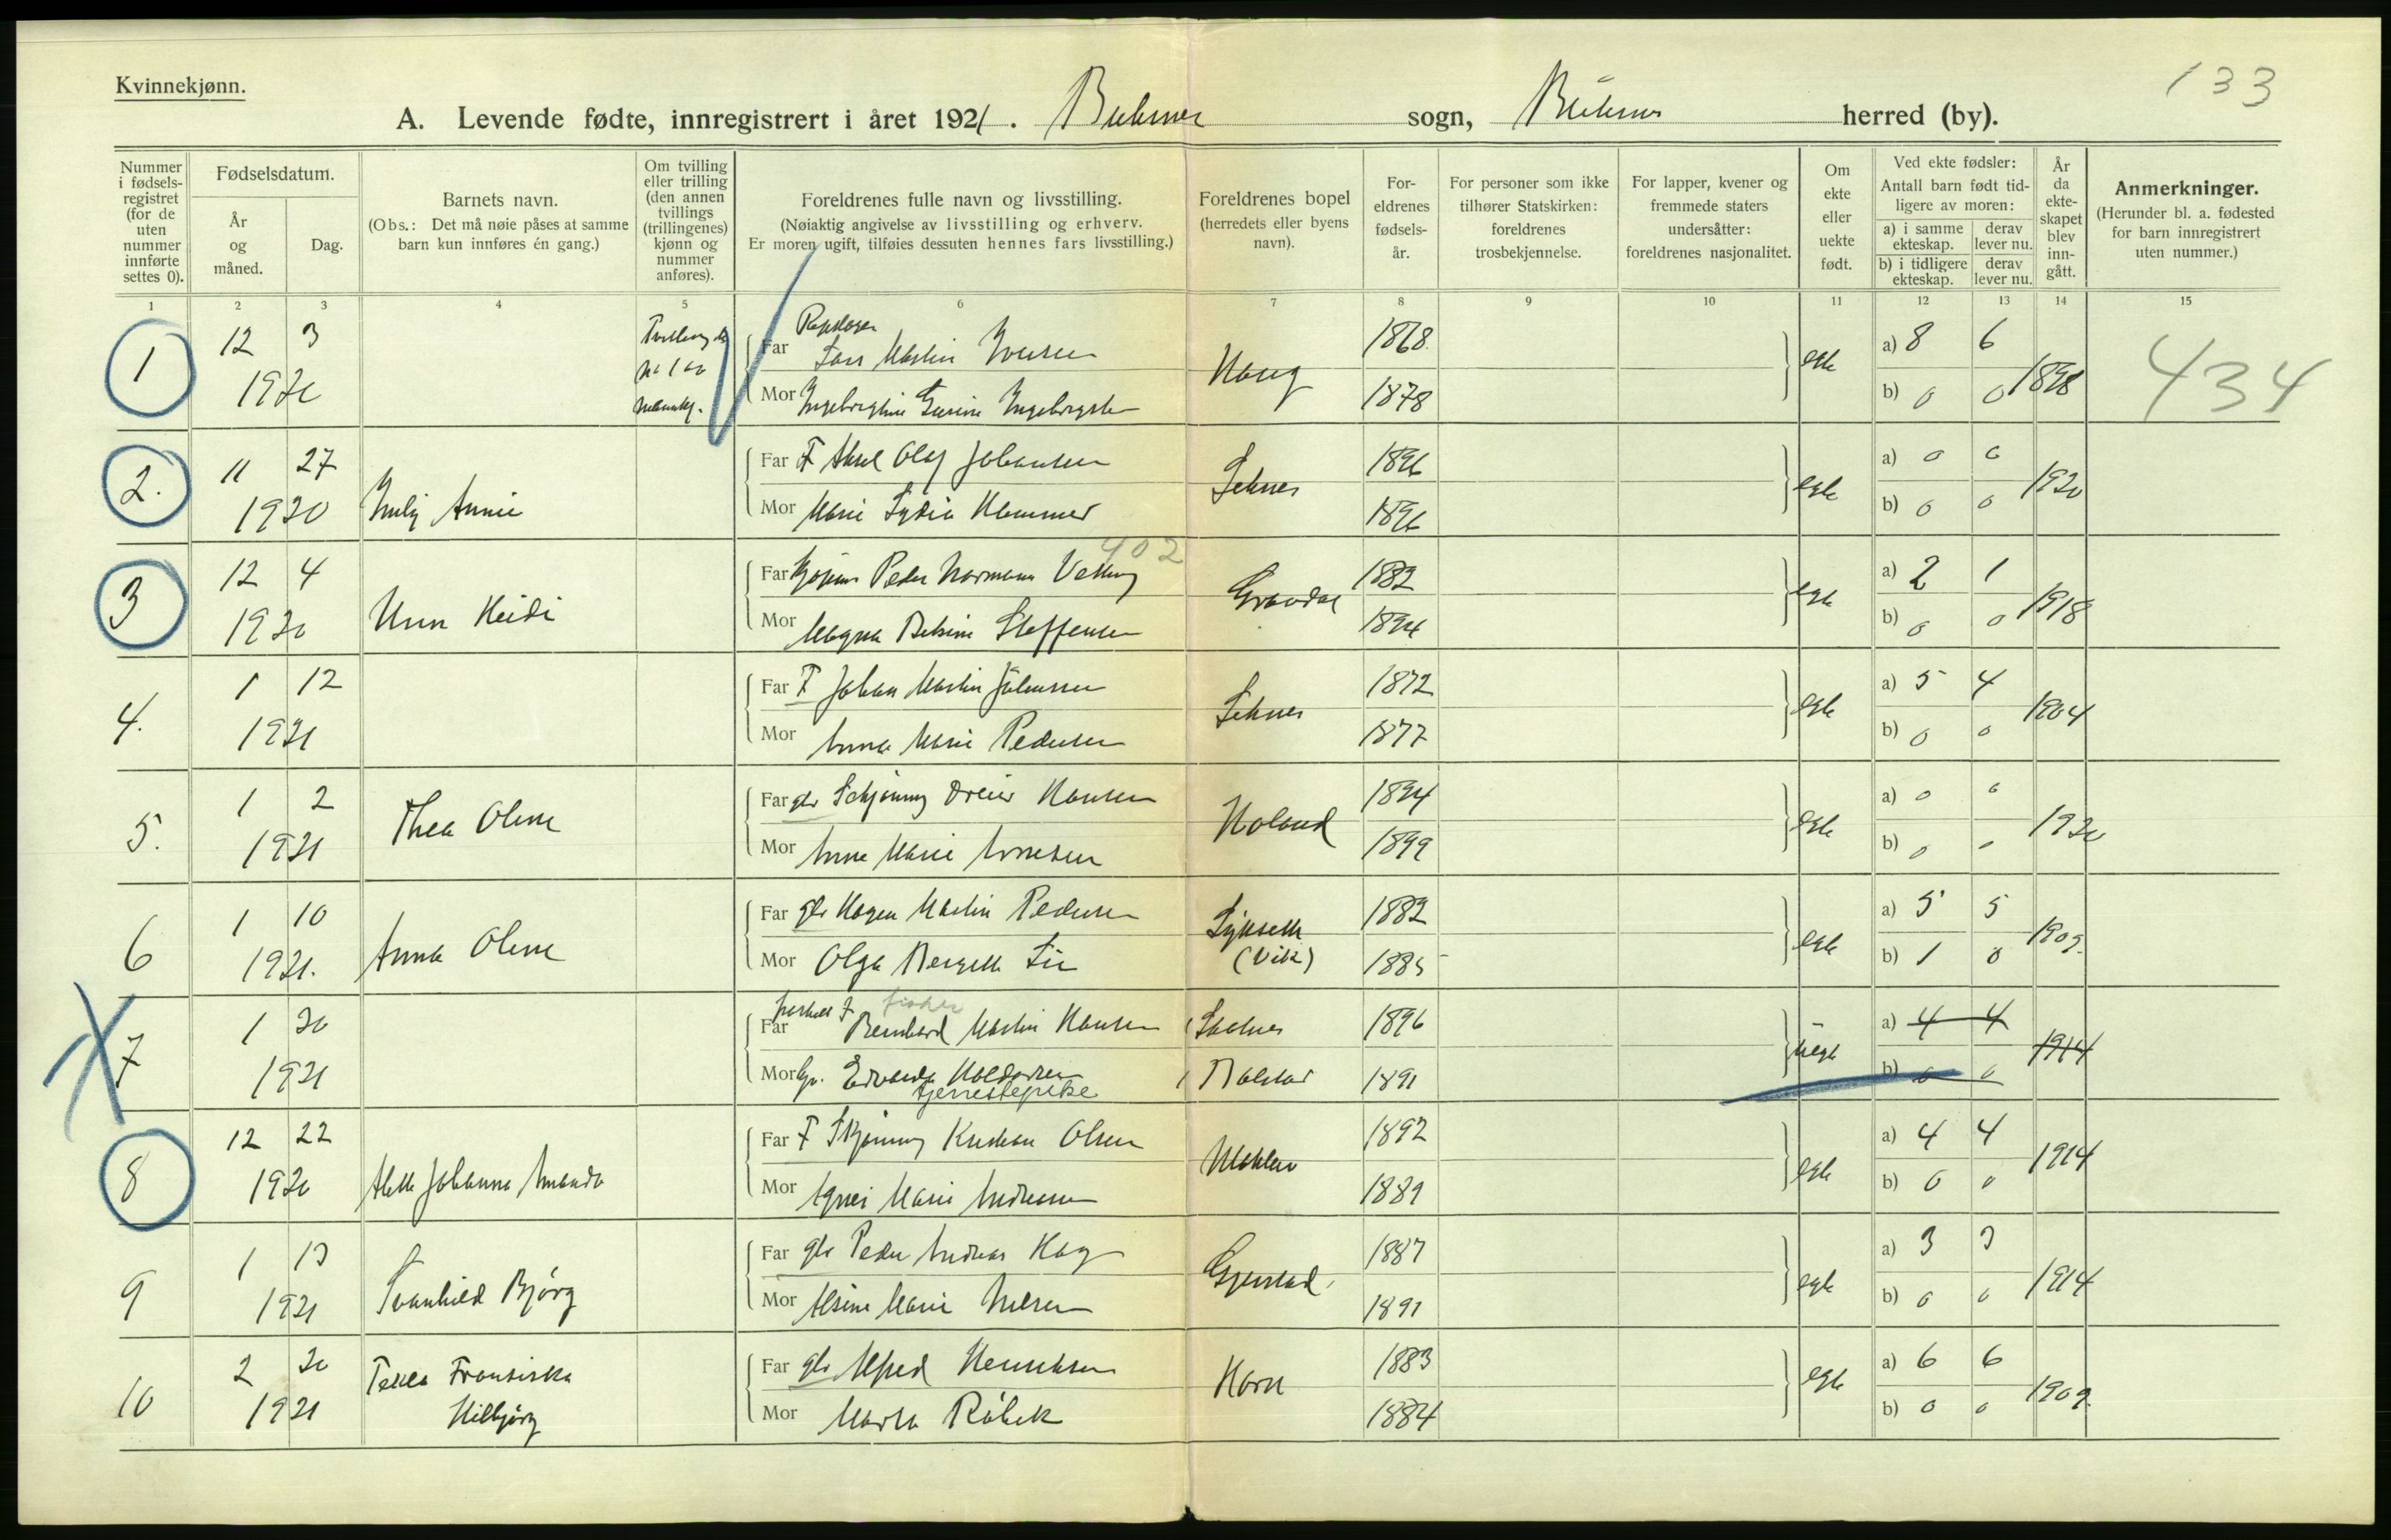 133
Kvinnekjønn.
A. Levende fødte, innregistrert i året 1921. Buksnes sogn, Buksnes herred (by).
Nummer i fødsels-registret (for de uten nummer innførte settes 0).
Fødselsdatum.
År og måned.
Dag.
Barnets navn.
(Obs.: Det må nøie påses at samme barn kun innføres én gang.)
Om tvilling eller trilling (den annen tvillings (trillingenes) kjønn og nummer anføres).
Foreldrenes fulle navn og livsstilling.
(Nøiaktig angivelse av livsstilling og erhverv.
Er moren ugift, tilføies dessuten hennes fars livsstilling.)
Foreldrenes bopel (herredets eller byens navn).
For-eldrenes fødsels-år.
For personer som ikke tilhører Statskirken: foreldrenes trosbekjennelse.
For lapper, kvener og fremmede staters undersåtter: foreldrenes nasjonalitet.
Om ekte eller uekte født.
Ved ekte fødsler: Antall barn født tid-ligere av moren:
a) i samme ekteskap. derav lever nu.
b) i tidligere ekteskap. derav lever nu.
År da ekte-skapet blev inn-gått.
Anmerkninger.
(Herunder bl. a. fødested for barn innregistrert uten nummer.)
1 2 3 4 5 6 7 8 9 10 11 12 13 14 15
1 12 3 1920 Tvilling
Far Lars Martin Iversen 1868 a) 8 6
Mor Ingeborgine 1878 Haug egte b) 0 0 1898 434
2. 11 27 1920 Annie
Far F Aksel Olaf Johansen 1896 a) 0 0
Mor Marie Lydia Hammer 1896 egte b) 0 0 1920
402
3 12 4 1920 Unn Heidi
Far Peder Normann 1882 a) 2 1
Mor Magna Steffensen 1894 Gravdal egte b) 0 0 1918
4. 1 12 1921
Far F Johan Martin Johansen 1872 a) 5 4
Mor Anna Marie Pedersen 1877 egte b) 0 0 1904
5. 1 2 1921 Thea Oline
Far gbr Schjønning Dreier Hansen 1894 a) 0 0
Mor Anne Marie Arntsen 1899 Holand egte b) 0 0 1920
6 1 10 1921. Anna Oline
Far gbr Hagen Martin Pedersen 1882 a) 5 5
Mor Olga 1885 (Vik) egte b) 1 0 1909.
7 1 20 1921
fisker
Far Bernhard Martin Hansen 1896 a) 4 4
Mor Edvarda Haldorsen 1891 uegte b) 0 0 1914
tjenestepike
8 12 22 1920 Johanna Amanda
Far F Kristian Olsen 1892 a) 4 4
Mor Agnes Marie Andreassen 1889 egte b) 0 0 1914
9 1 13 1921 Svanhild Bjørg
Far gbr Peder Andreas Hag 1887 a) 3 3
Mor Alsine Marie Nilsen 1891 Gjerstad egte b) 0 0 1914
10 2 20 1921 Fransiska
Hilbjørg
Far gbr Alfred Henriksen 1883 a) 6 6
Mor Marta Råbek 1884 Horn egte b) 0 0 1909.